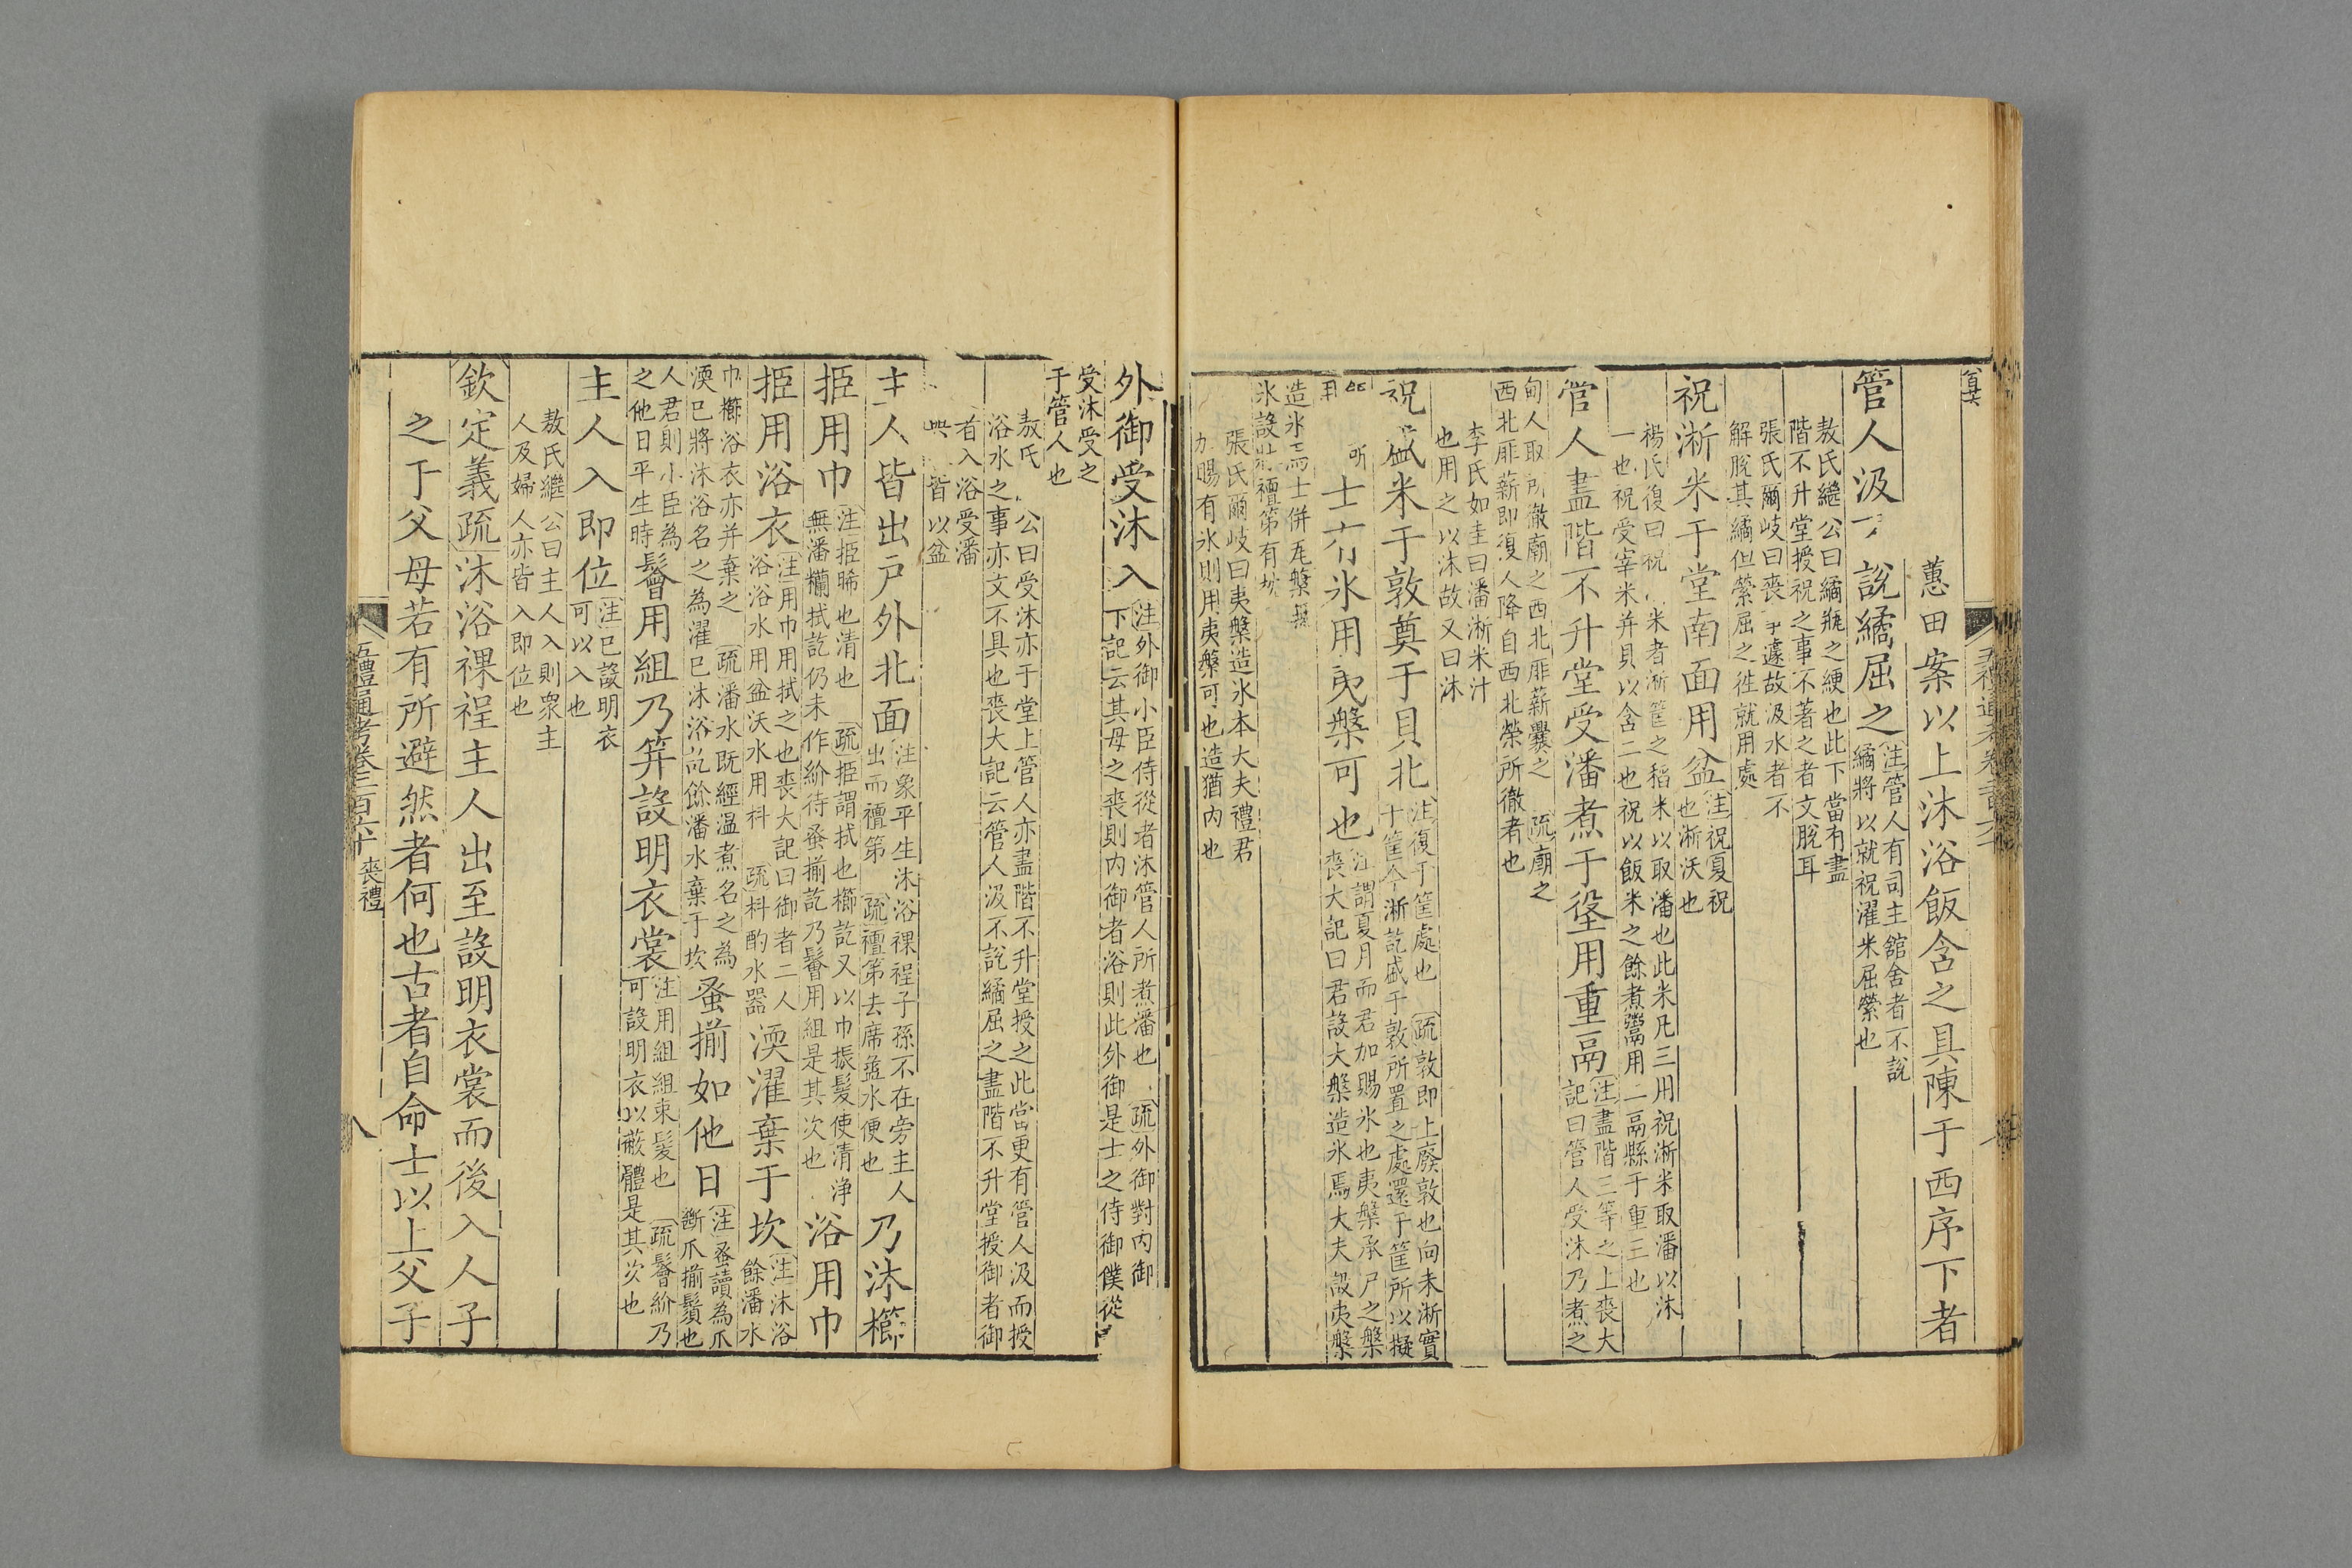 蕙田案以上沐浴飯含之具陳于西序下者
管人汲
說繘屈之
注管人有司主舘舍者不說
繘將以就祝濯米屈縈也
敖氏繼公曰繘瓶之綆也此下當有盡
階不升堂授祝之事不著之者文脫耳
張氏爾岐曰喪事遽故汲水者不
解脫其繘但縈屈之徃就用處
祝淅米于堂南面用盆
注祝夏祝
也淅沃也
楊氏復曰祝米者淅筐之稻米以取潘也此米凡三用祝淅米取潘以沐
一也祝受宰米并貝以含二也祝以飯米之餘煮鬻用二鬲縣于重三也
管人盡階不升堂受潘煮于垼用重鬲
注盡階三等之上喪大
記曰管人受沐乃煮之
甸人取所徹廟之西北厞薪爨之
疏廟之
西北厞薪即復人降自西北榮所徹者也
李氏如圭曰潘淅米汁
也用之以沐故又曰沐
祝盛米于敦奠于貝北
注復于筐處也
疏敦即上廢敦也向未淅實
于筐今淅訖盛于敦所置之處還于筐所以擬
所
用
士有冰用夷槃可也
注謂夏月而君加賜冰也夷槃承尸之槃
喪大記曰君設大槃造冰焉大夫設夷槃
造冰焉士併瓦槃無
冰設牀襢第有枕
張氏爾岐曰夷槃造冰本大夫禮君
加賜有冰則用夷槃可也造猶内也
外御受沐入
注外御小臣侍從者沐管人所煮潘也
疏外御對内御
下記云其母之喪則内御者浴則此外御是士之侍御僕從
受沐受之
于管人也
敖氏
公曰受沐亦于堂上管人亦盡階不升堂授之此當更有管人汲而授
浴水之事亦文不具也喪大記云管人汲不說繘屈之盡階不升堂授御者御
者入浴受潘
皆以盆
主人皆出戸外北面
注象平生沐浴祼裎子孫不在旁主人
出而襢第
疏襢第去席盝水便也
乃沐櫛
挋用巾
注挋晞也清也
疏挋謂拭也櫛訖又以巾振髮使清淨
無潘糷拭訖仍未作紒待蚤揃訖乃鬠用組是其次也
浴用巾
挋用浴衣
注用巾用拭之也喪大記曰御者二人
浴浴水用盆沃水用枓
疏枓酌水器
渜濯棄于坎
注沐浴
餘潘水
巾櫛浴衣亦并棄之
疏潘水既經温煮名之為
渜已將沐浴名之為濯已沐浴訖餘潘水棄于坎
蚤揃如他日
注蚤讀為爪
斷爪揃鬚也
人君則小臣為
之他日平生時
鬠用組乃筓設明衣裳
注用組組束髮也
疏鬠紒乃
可設明衣以蔽體是其次也
主人入即位
注已設明衣
可以入也
敖氏繼公曰主人入則衆主
人及婦人亦皆入即位也
欽定義疏沐浴祼裎主人出至設明衣裳而後入人子
之于父母若有所避然者何也古者自命士以上父子
五禮通考卷二百六十
喪禮
八